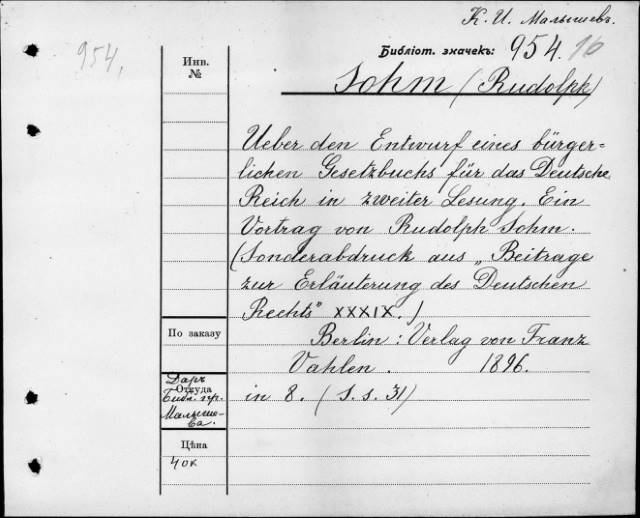 К. И. Малышевъ.
954,
Библіот. значекъ: 954.16
Инв.
№
Sohm (Rudolph)
Ueber den Entwurf eines bürger=
lichen Gesetzbuchs für das Deutsche
Reich in zweiter Lesung. Ein
Vortrag von Rudolph Sohm.
(Sonderabdruck aus „Beitrage
zur Erläuterung des Deutschen
Rechts" XXXIX.)
По заказу
Berlin: Verlag von Franz
Vahlen. 1896.
Даръ
Откуда
Библ. пр.
Малыше-
ва.
in 8. (S. s. 31)
Цѣна
40к